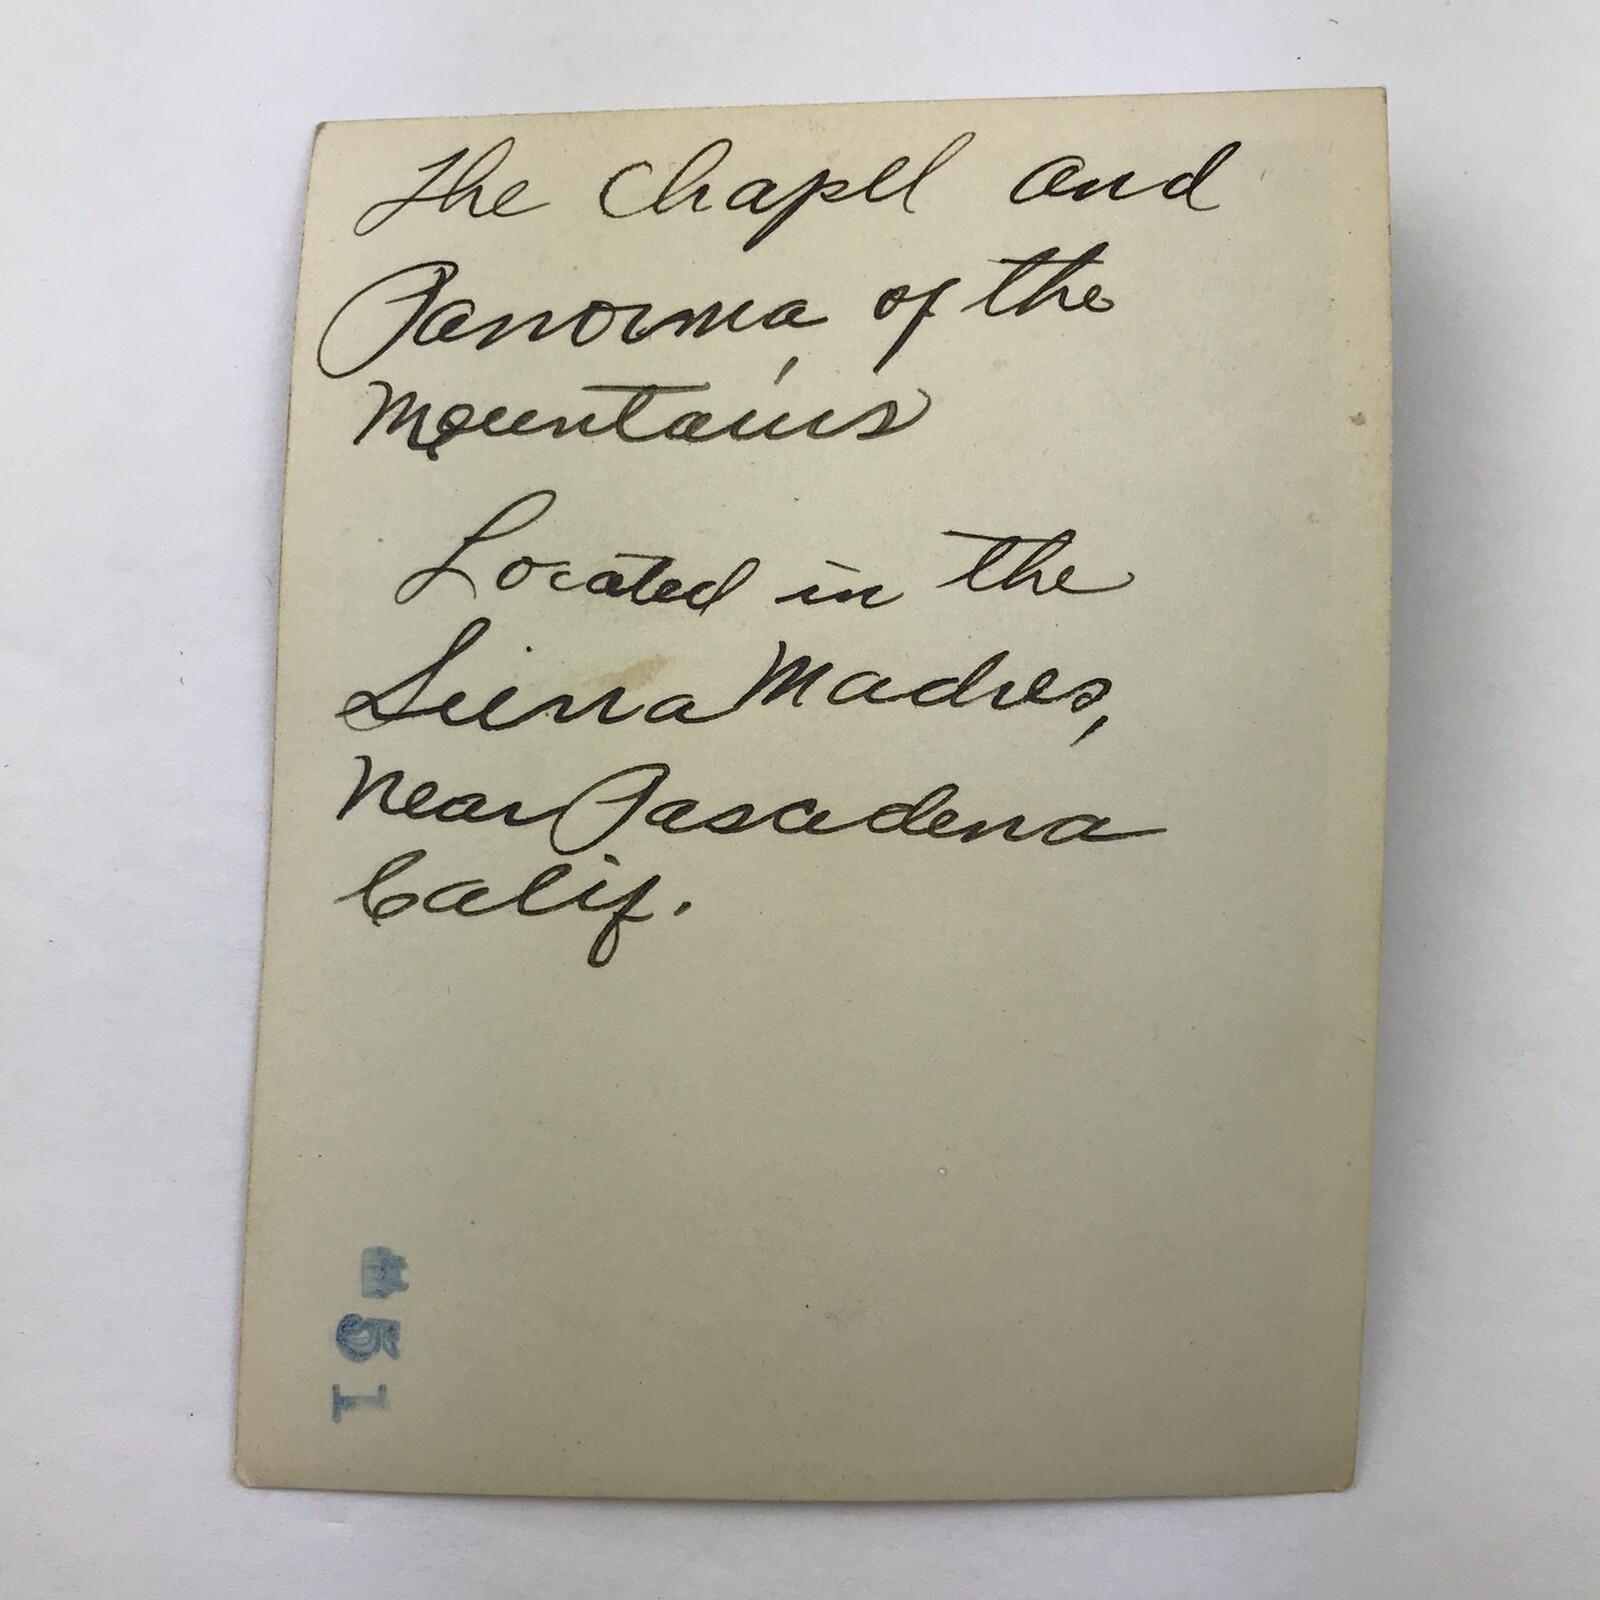 The Chapel and
Panorma of the
Mountains
Located in the
Sierra Madres,
Near Pasadena
Calif.
51